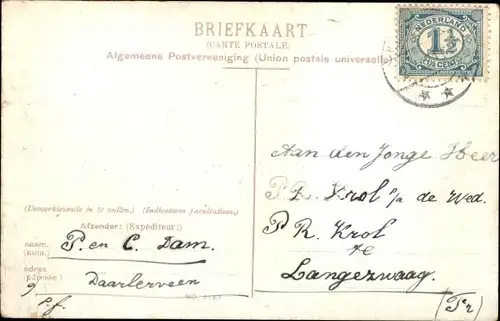 BRIEFKAART
(CARTE POSTALE)
Algemeene Postvereeniging (Union postale universelle)
NEDERLAND
1½
1½ CENT
Aan den Jonge Heer
P. R. Krol p/a de Wed.
P R. Krol
te
Langezwaag.
(Fr)
(Desverkiezende in te vullen.) (Indications facultatives.)
Afzender: (Expéditeur:)
naam. (nom.) P. en C. Dam.
adres. (adresse.) Daarlerveen
p.f.